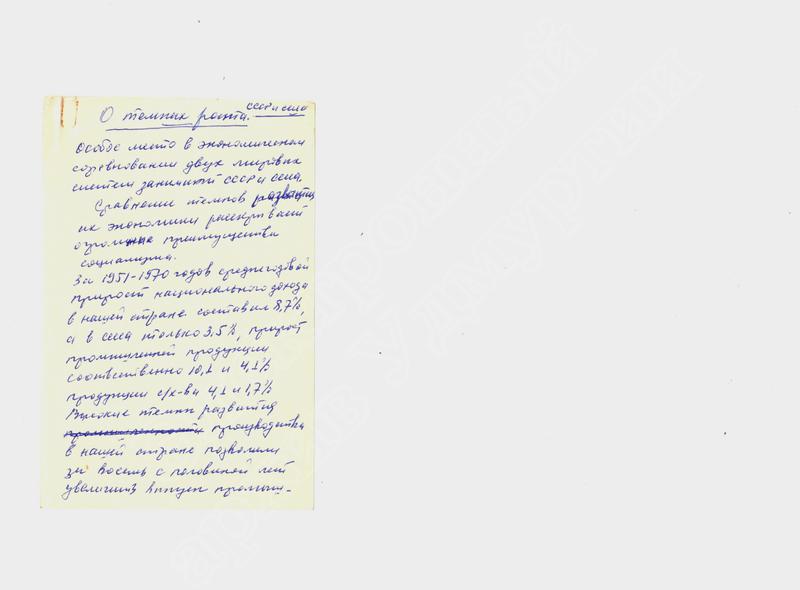 О темпах роста. СССР и США
Особое место в экономическом
соревновании двух мировых
систем занимают СССР и США.
Сравнение темпов развития
их экономики раскрывает
огромные преимущества
социализма.
За 1951-1970 годов среднегодовой
прирост национального дохода
в нашей стране составил 8,7%,
а в США только 3,5%, прирост
промышленной продукции
соответственно 10,1 и 4,1%
продукции с/х-ва 4,1 и 1,7%
Высокие темпы развития
промышленности производства
в нашей стране позволили
за восемь с половиной лет
увеличить выпуск промыш-